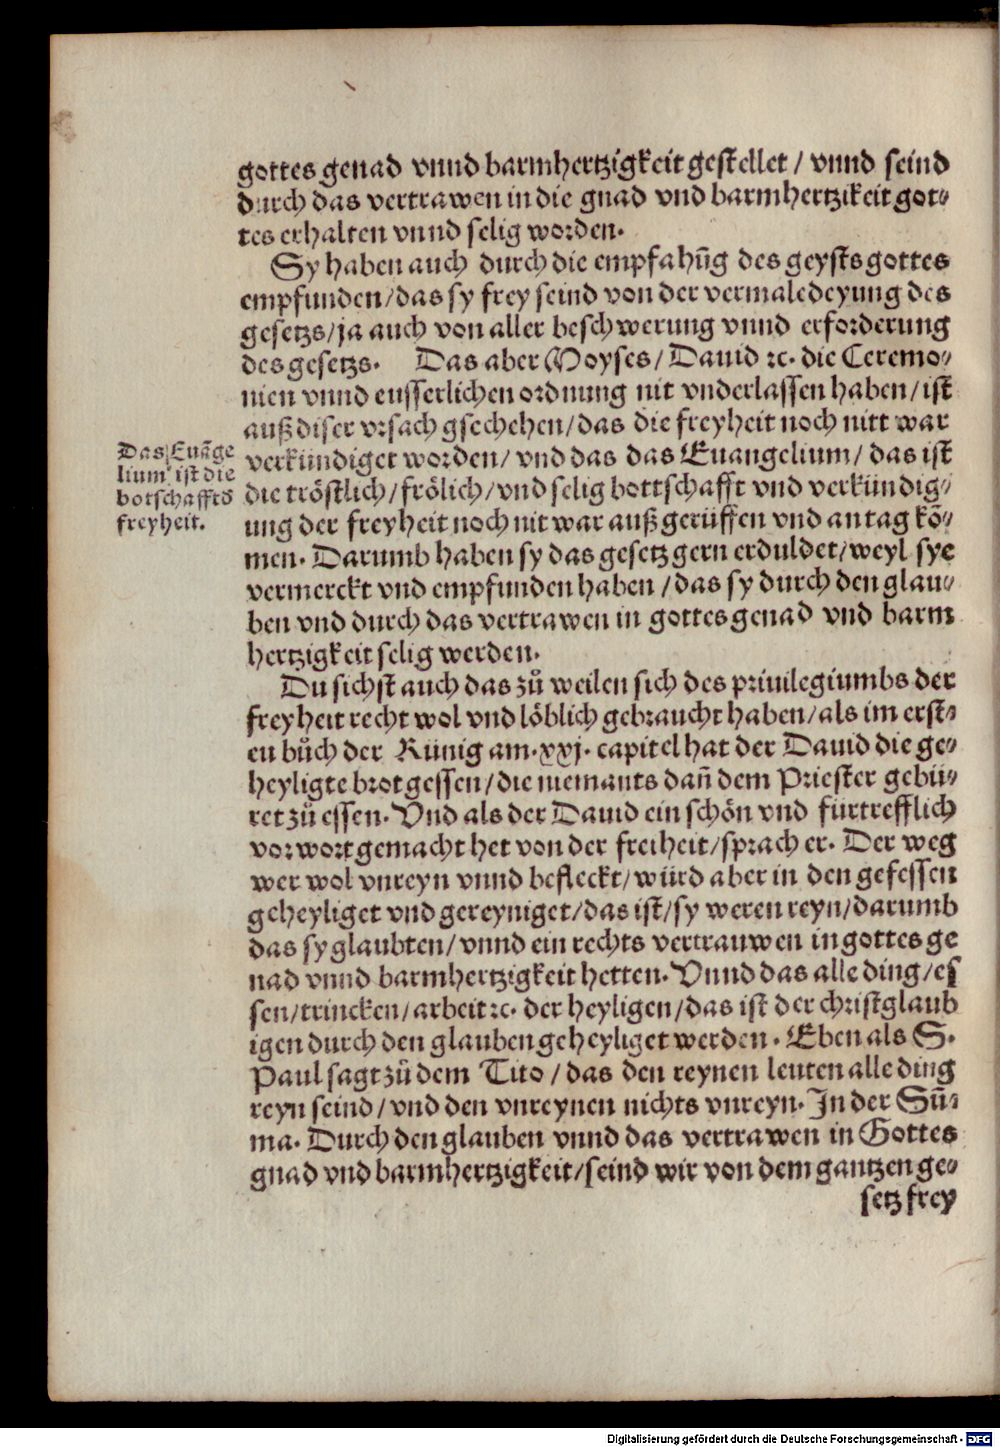 gottes genad vnnd barmhertzigkeit gestellet / vnnd seind
durch das vertrawen in die gnad vnd barmhertzikeit got⸗
tes erhalten vnnd selig worden.
Sy haben auch durch die empfahūg des geysts gottes
empfunden/das sy frey seind von der vermaledeyung des
gesetzs/ja auch von aller beschwerung vnnd erforderung
des gesetzs. Das aber Moyses/Dauid ⁊c. die Ceremo⸗
nien vnnd eusserlichen ordnung nit vnderlassen haben/ist
auß diser vrsach gsechehen/das die freyheit noch nitt war
verkündiget worden/vnd das das Euangelium/das ist
die tröstlich/frölich/vnd selig bottschafft vnd verkündig⸗
ung der freyheit noch nit war auß gerüffen vnd an tag kō⸗
men. Darumb haben sy das gesetz gern erduldet/weyl sye
vermerckt vnd empfunden haben/das sy durch den glau⸗
ben vnd durch das vertrawen in gottes genad vnd barm
hertzigkeit selig werden.
Das Euāge
lium ist die
botschafft d
freyheit.
Du sichst auch das zů weilen sich des priuilegiumbs der
freyheit recht wol vnd löblich gebraucht haben/als im erst⸗
en bůch der Künig am.xxj. capitel hat der Dauid die ge⸗
heyligte brot gessen/die niemants dañ dem Priester gebü⸗
ret zů essen. Vnd als der Dauid ein schön vnd fürtrefflich
vorwort gemacht het von der freiheit/sprach er. Der weg
wer wol vnreyn vnnd befleckt/würd aber in den gefessen
geheyliget vnd gereyniget/das ist/sy weren reyn/darumb
das sy glaubten/vnnd ein rechts vertrauwen in gottes ge
nad vnnd barmhertzigkeit hetten. Vnnd das alle ding/es
sen/trincken/arbeit ⁊c. der heyligen/das ist der christglaub
igen durch den glauben geheyliget werden. Eben als S.
Paul sagt zů dem Tito/das den reynen leuten alle ding
reyn seind/vnd den vnreynen nichts vnreyn. In der Sū⸗
ma. Durch den glauben vnnd das vertrawen in Gottes
gnad vnd barmhertzigkeit/seind wir von dem gantzen ge⸗
setz frey
Digitalisierung gefördert durch die Deutsche Forschungsgemeinschaft - DFG